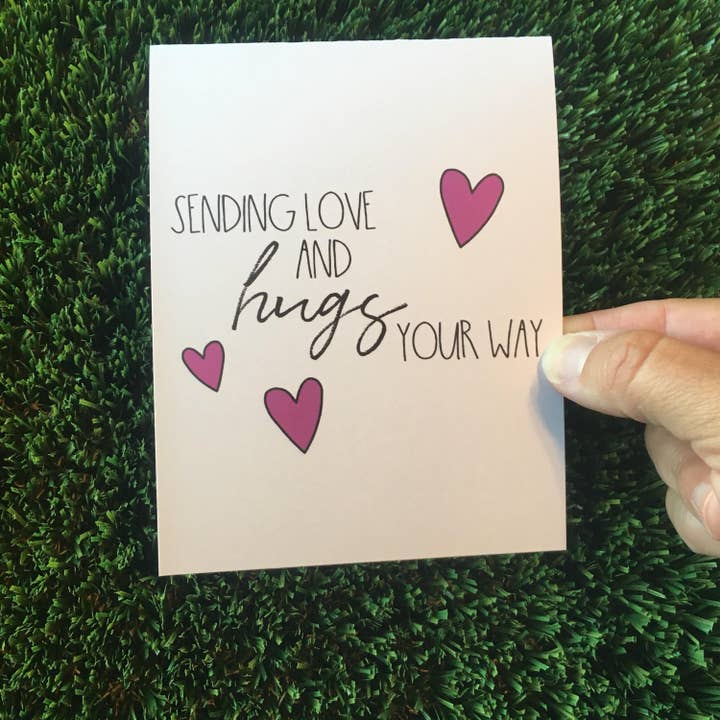 SENDING LOVE
AND
hugs
YOUR WAY